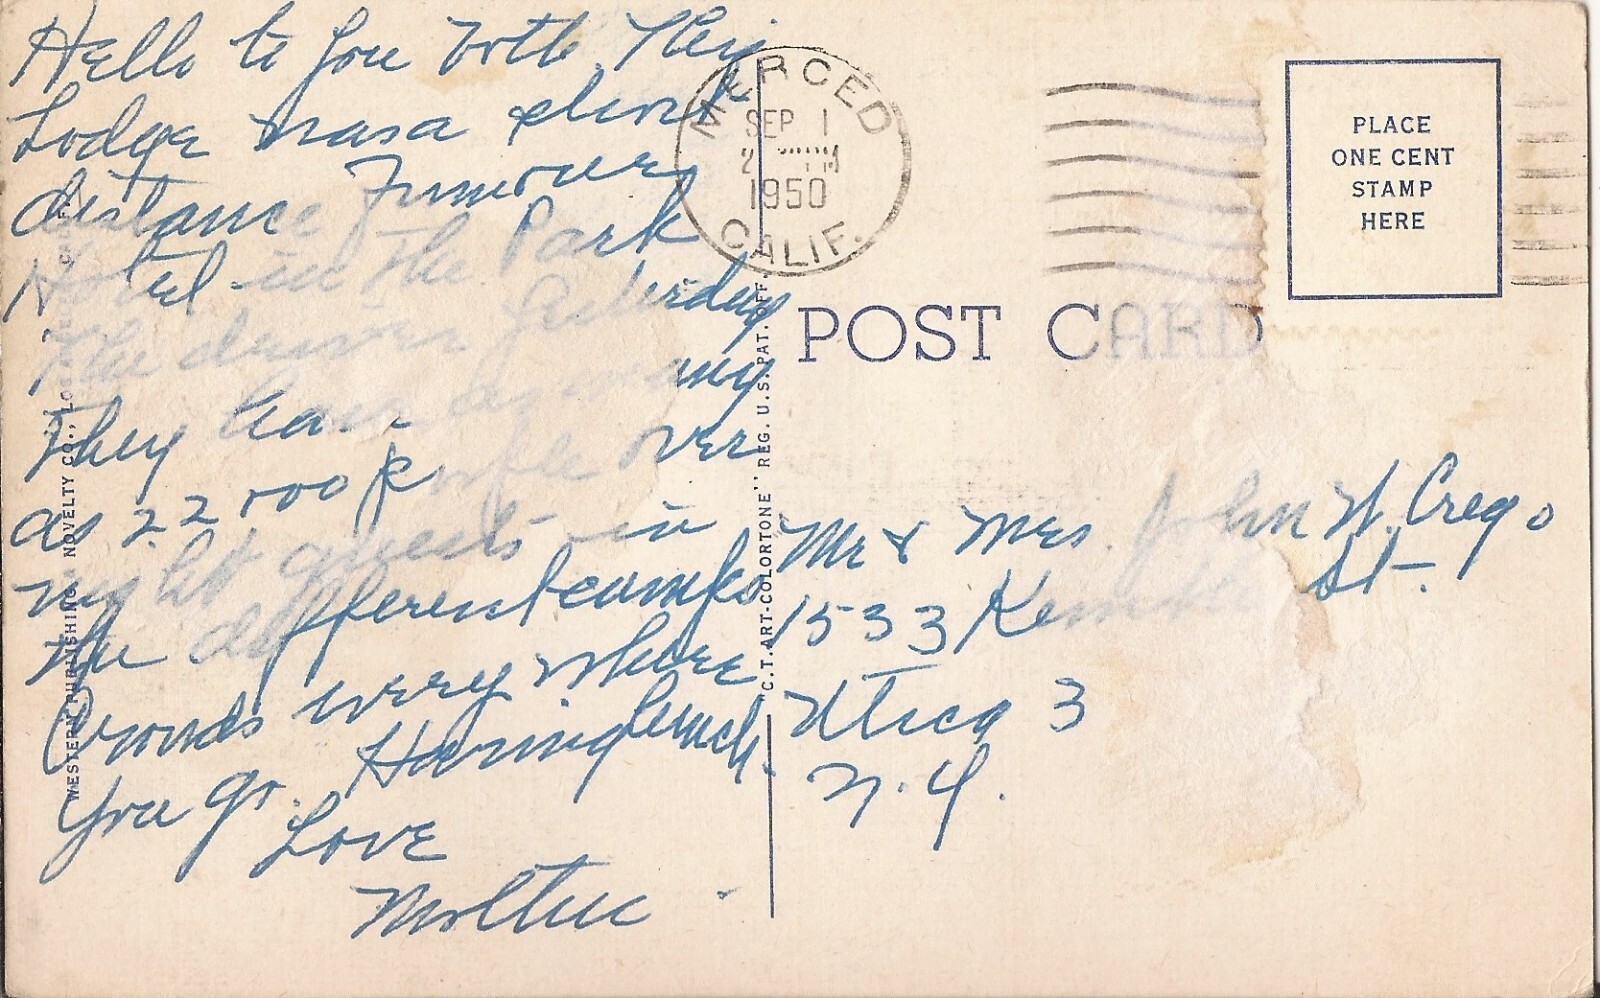 Hello to you both. This
Lodge was a short
distance from our
Hotel in the Park
The driver yesterday
They have as many
as 22 000 people over
night guests in
the different camps
Crowds every where
you go. Having lunch.
Love
MERCED
CALIF.
SEP 1
PM
1950
PLACE
ONE CENT
STAMP
HERE
POST CARD
Mr & Mrs. John W. Crego
1533 St.
Utica 3
N.Y.
WESTERN PUBLISHING & NOVELTY CO., LOS CALIF.
"C.T. ART-COLORTONE" REG. U.S. PAT. OFF.